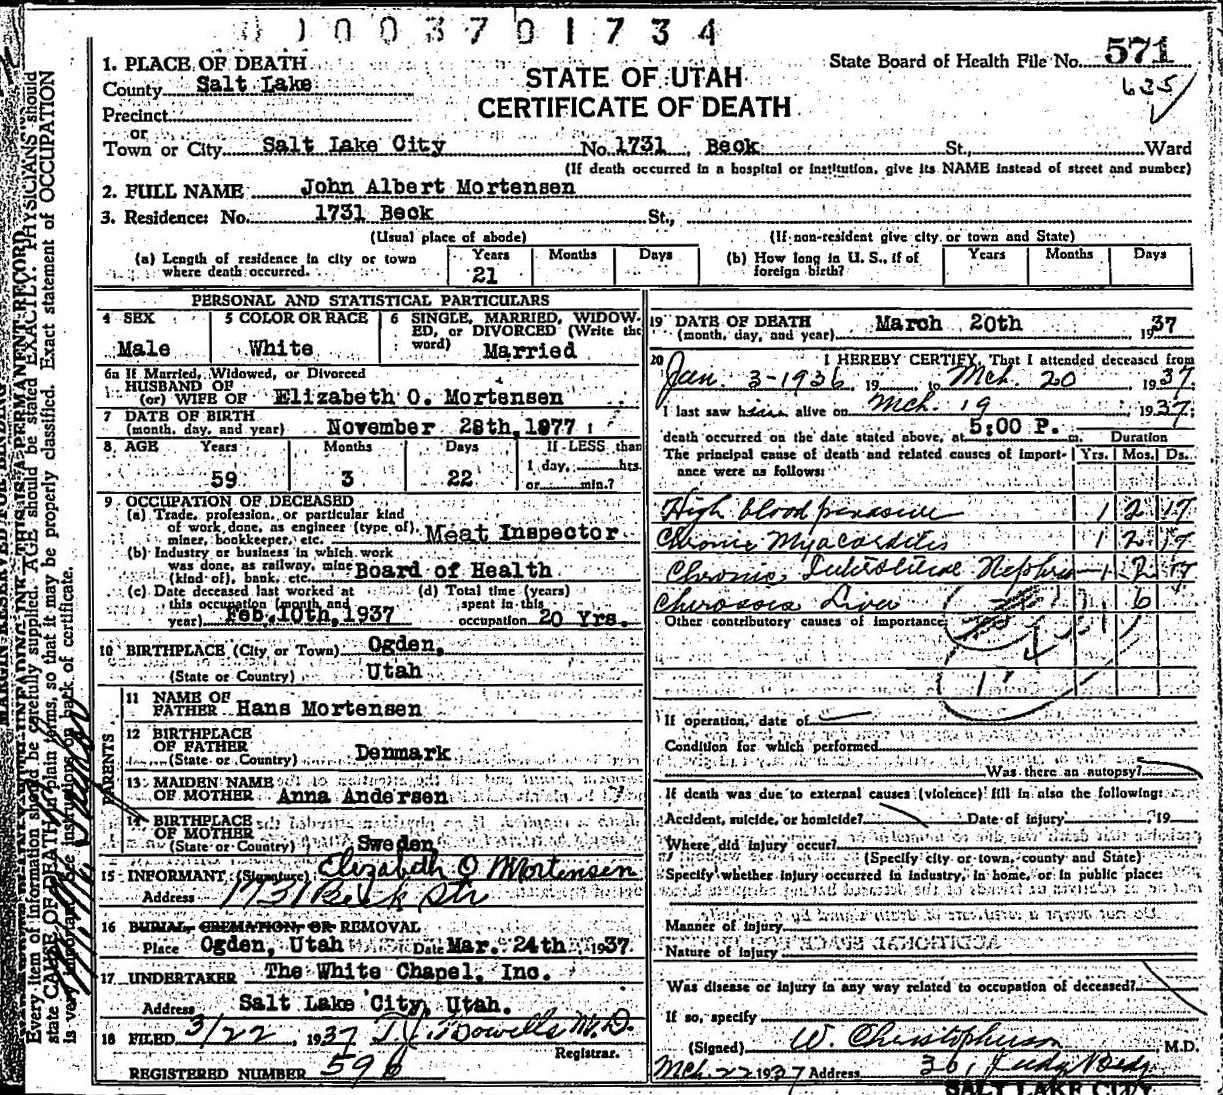 0 1 0 0 3 7 0 1 7 3 4
State Board of Health File No. 571
635
STATE OF UTAH
CERTIFICATE OF DEATH
1. PLACE OF DEATH
County Salt Lake
Precinct
or
Town or City Salt Lake City No. 1731 Beck St., Ward
(If death occurred in a hospital or institution, give its NAME instead of street and number)
2. FULL NAME John Albert Mortensen
3. Residence: No. 1731 Beck St.,
(Usual place of abode) (If non-resident give city or town and State)
(a) Length of residence in city or town where death occurred. Years 21 Months Days
(b) How long in U. S., if of foreign birth? Years Months Days
PERSONAL AND STATISTICAL PARTICULARS
4 SEX Male
5 COLOR OR RACE White
6 SINGLE, MARRIED, WIDOWED, or DIVORCED (Write the word) Married
6a If Married, Widowed, or Divorced
HUSBAND OF
(or) WIFE OF Elizabeth O. Mortensen
7 DATE OF BIRTH
(month, day, and year) November 28th, 1877
8 AGE Years 59 Months 3 Days 22 If LESS than 1 day, hrs. or min.?
9 OCCUPATION OF DECEASED
(a) Trade, profession, or particular kind
of work done, as engineer (type of),
miner, bookkeeper, etc. Meat Inspector
(b) Industry or business in which work
was done, as railway, mine
(kind of), bank, etc. Board of Health
(c) Date deceased last worked at
this occupation (month and
year) Feb. 10th, 1937
(d) Total time (years)
spent in this
occupation 20 Yrs.
10 BIRTHPLACE (City or Town) Ogden,
(State or Country) Utah
PARENTS
11 NAME OF
FATHER Hans Mortensen
12 BIRTHPLACE
OF FATHER
(State or Country) Denmark
13 MAIDEN NAME
OF MOTHER Anna Andersen
14 BIRTHPLACE
OF MOTHER
(State or Country) Sweden
15 INFORMANT (Signature) Elizabeth O Mortensen
Address 1731 Beck Str
16 BURIAL, CREMATION, OR REMOVAL
Place Ogden, Utah Date Mar. 24th 1937
17 UNDERTAKER The White Chapel, Inc.
Address Salt Lake City, Utah.
18 FILED 3/22, 1937 T.J. Howells M.D.
Registrar.
REGISTERED NUMBER 596
19 DATE OF DEATH
(month, day, and year) March 20th 1937
20 I HEREBY CERTIFY, That I attended deceased from
Jan. 3-1936, 19 to Mch. 20 1937
I last saw him alive on Mch. 19, 1937;
death occurred on the date stated above, at 5:00 P. m. Duration
The principal cause of death and related causes of importance were as follows: Yrs. Mos. Ds.
High blood pressure 1 2 17
Chronic Myocarditis 1 2 17
Chronic Interstitial Nephr 1 2 17
Cirrosis Liver 6
Other contributory causes of importance:
If operation, date of
Condition for which performed
Was there an autopsy?
If death was due to external causes (violence) fill in also the following:
Accident, suicide, or homicide? Date of injury , 19
Where did injury occur?
(Specify city or town, county and State)
Specify whether injury occurred in industry, in home, or in public place:
Manner of injury
Nature of injury
Was disease or injury in any way related to occupation of deceased?
If so, specify
(Signed) W. Christopherson, M.D.
Mch. 22 1937 Address 361 Judge Bldg
SALT LAKE CITY
MARGIN RESERVED FOR BINDING
Every item of information should be carefully supplied. AGE should be stated EXACTLY. PHYSICIANS should
state CAUSE OF DEATH in plain terms, so that it may be properly classified. Exact statement of OCCUPATION
is very important. See instructions on back of certificate.